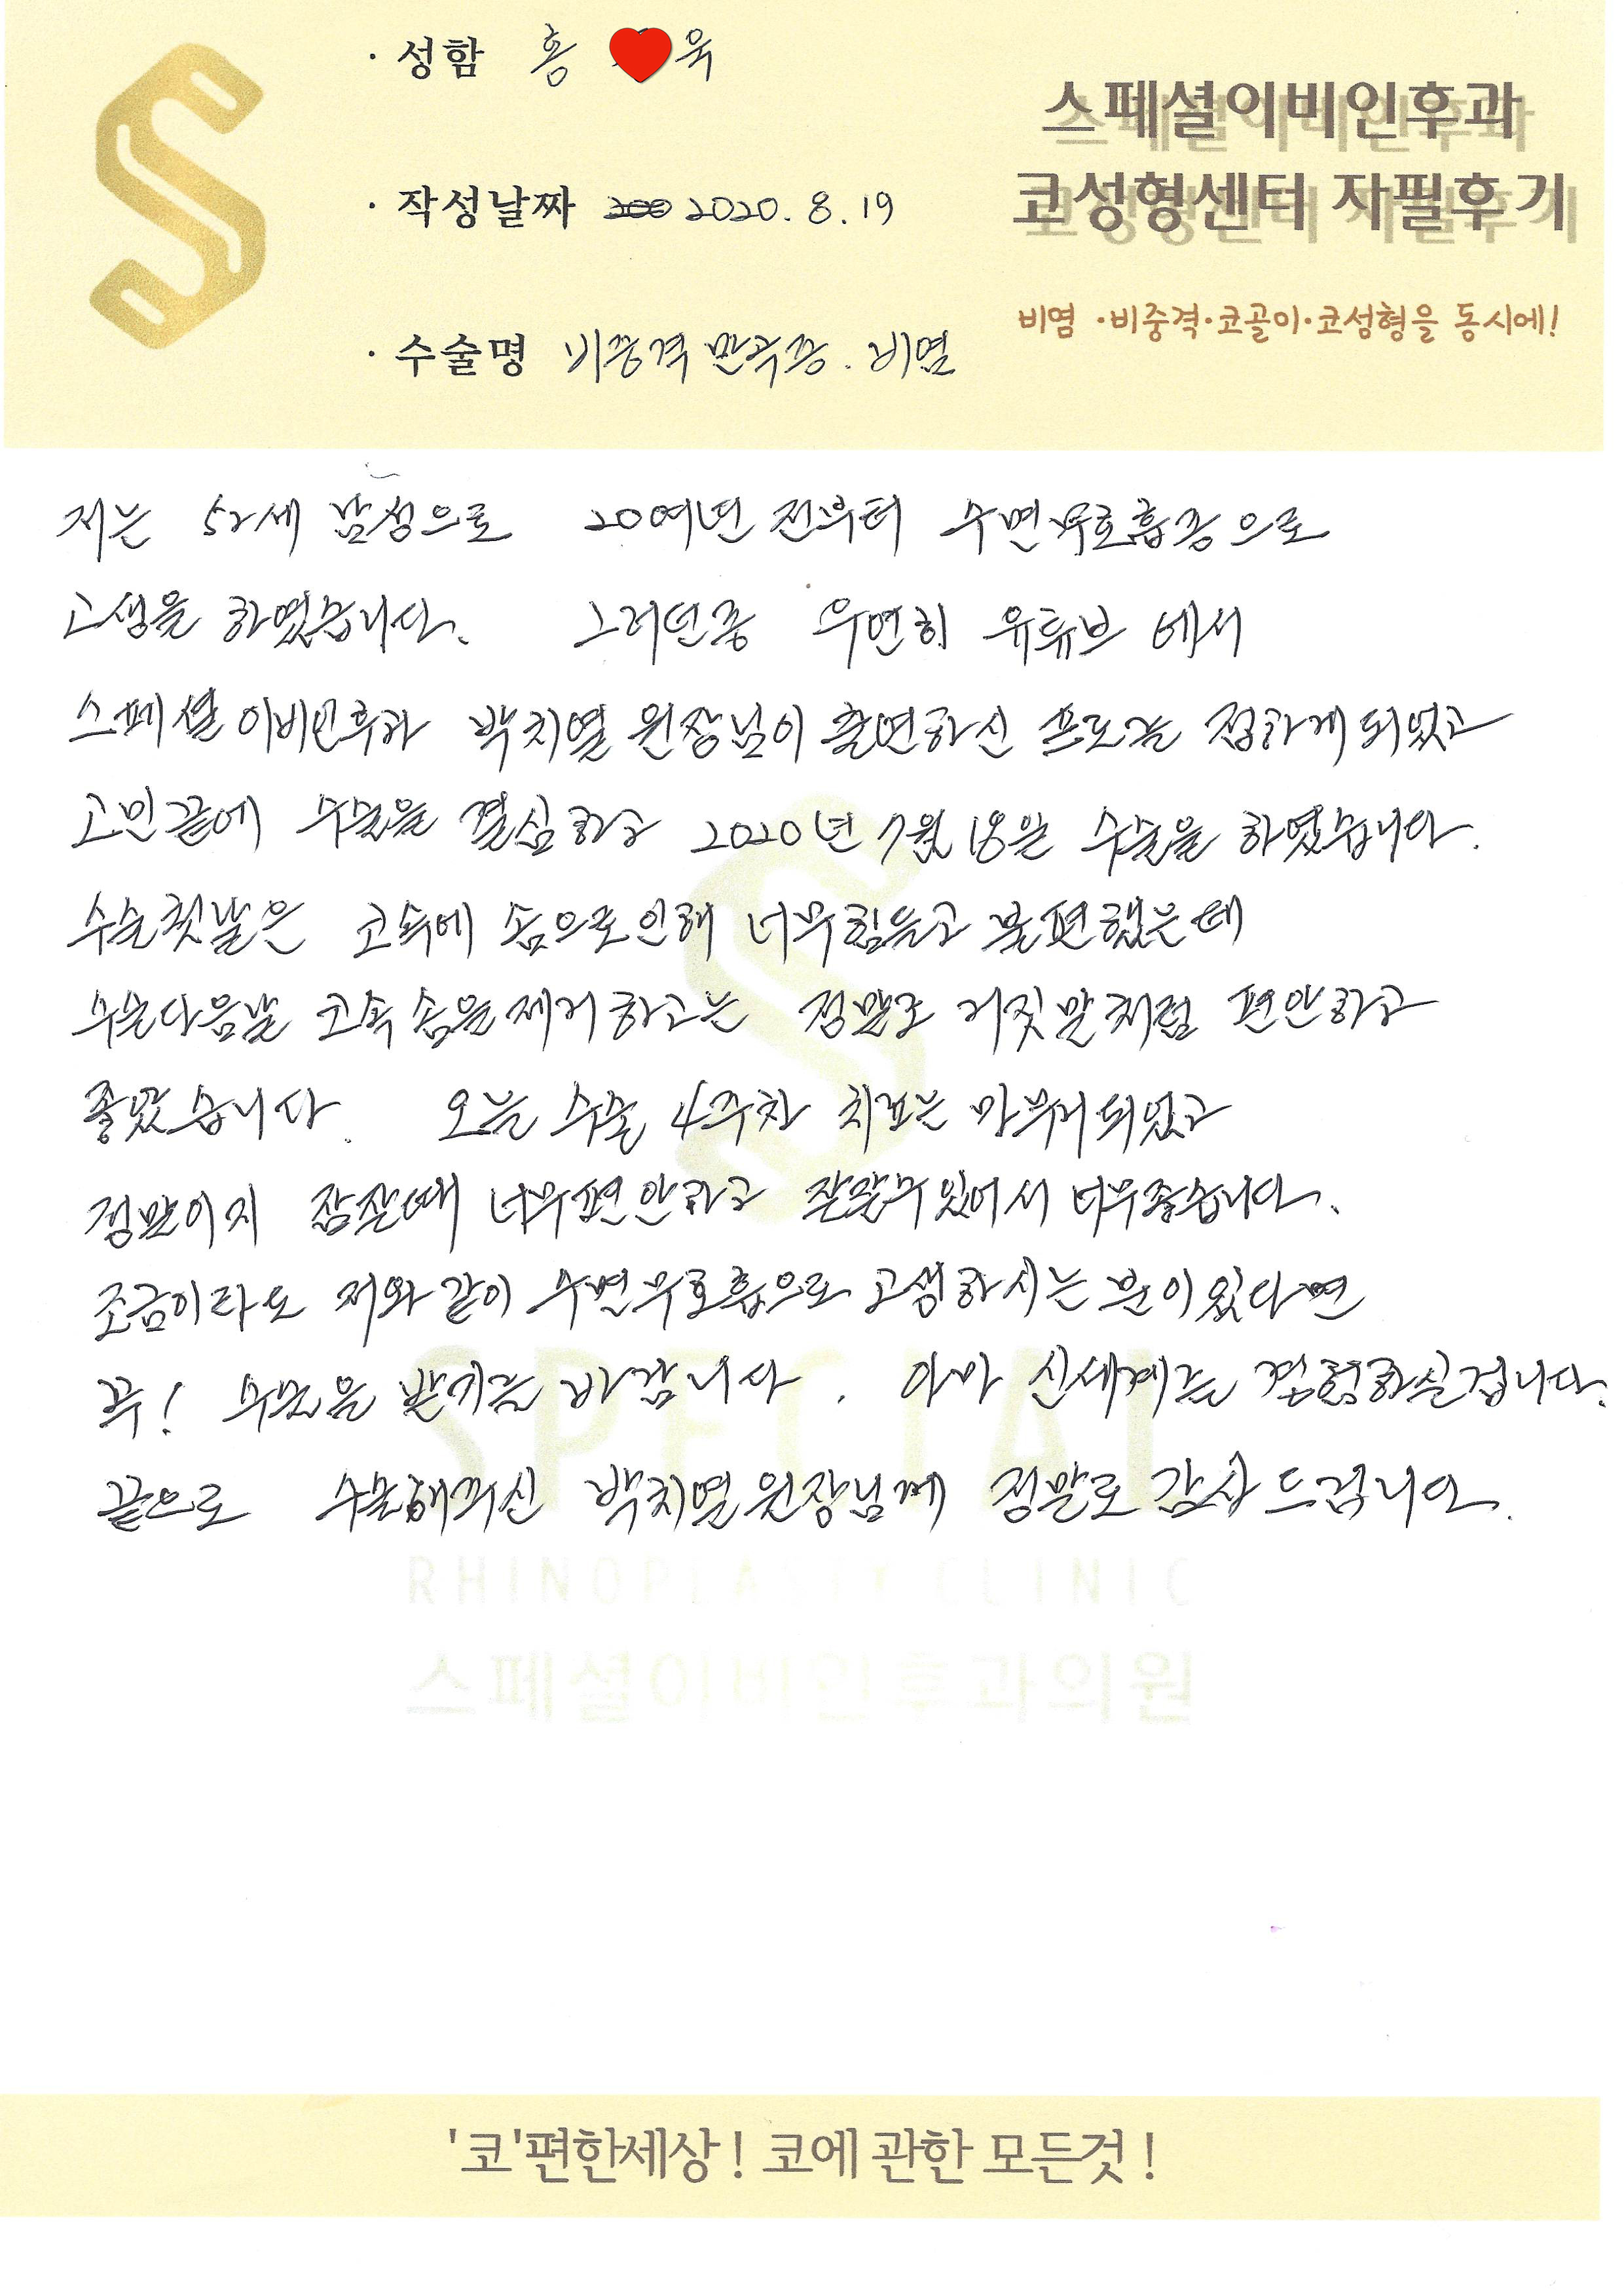 · 성함 홍 욱
스페셜이비인후과
코성형센터 자필후기
· 작성날짜 2020. 8. 19
비염 ·비중격·코골이·코성형을 동시에!
· 수술명 비중격 만곡증. 비염
저는 52세 남성으로 20여년 전부터 수면무호흡증으로
고생을 하였습니다. 그러던중 우연히 유튜브 에서
스페셜 이비인후과 박치열 원장님이 출연하신 프로를 접하게 되었고
고민끝에 수술을 결심하고 2020년 7월 18일 수술을 하였습니다.
수술첫날은 코속에 솜으로인해 너무힘들고 불편했는데
수술다음날 코속 솜을제거하고는 정말로 거짓말처럼 편안하고
좋았습니다. 오늘 수술 4주차 치료는 마무리되었고
정말이지 잠잘때 너무편안하고 잘잘수있어서 너무좋습니다.
조금이라도 저와같이 수면무호흡으로 고생하시는 분이있다면
꼭! 수술을 받기를 바랍니다. 아마 신세계를 경험하실겁니다.
끝으로 수술해주신 박치열원장님께 정말로 감사 드립니다.
SPECIAL
RHINOPLASTY CLINIC
스페셜이비인후과의원
'코'편한세상! 코에 관한 모든것!